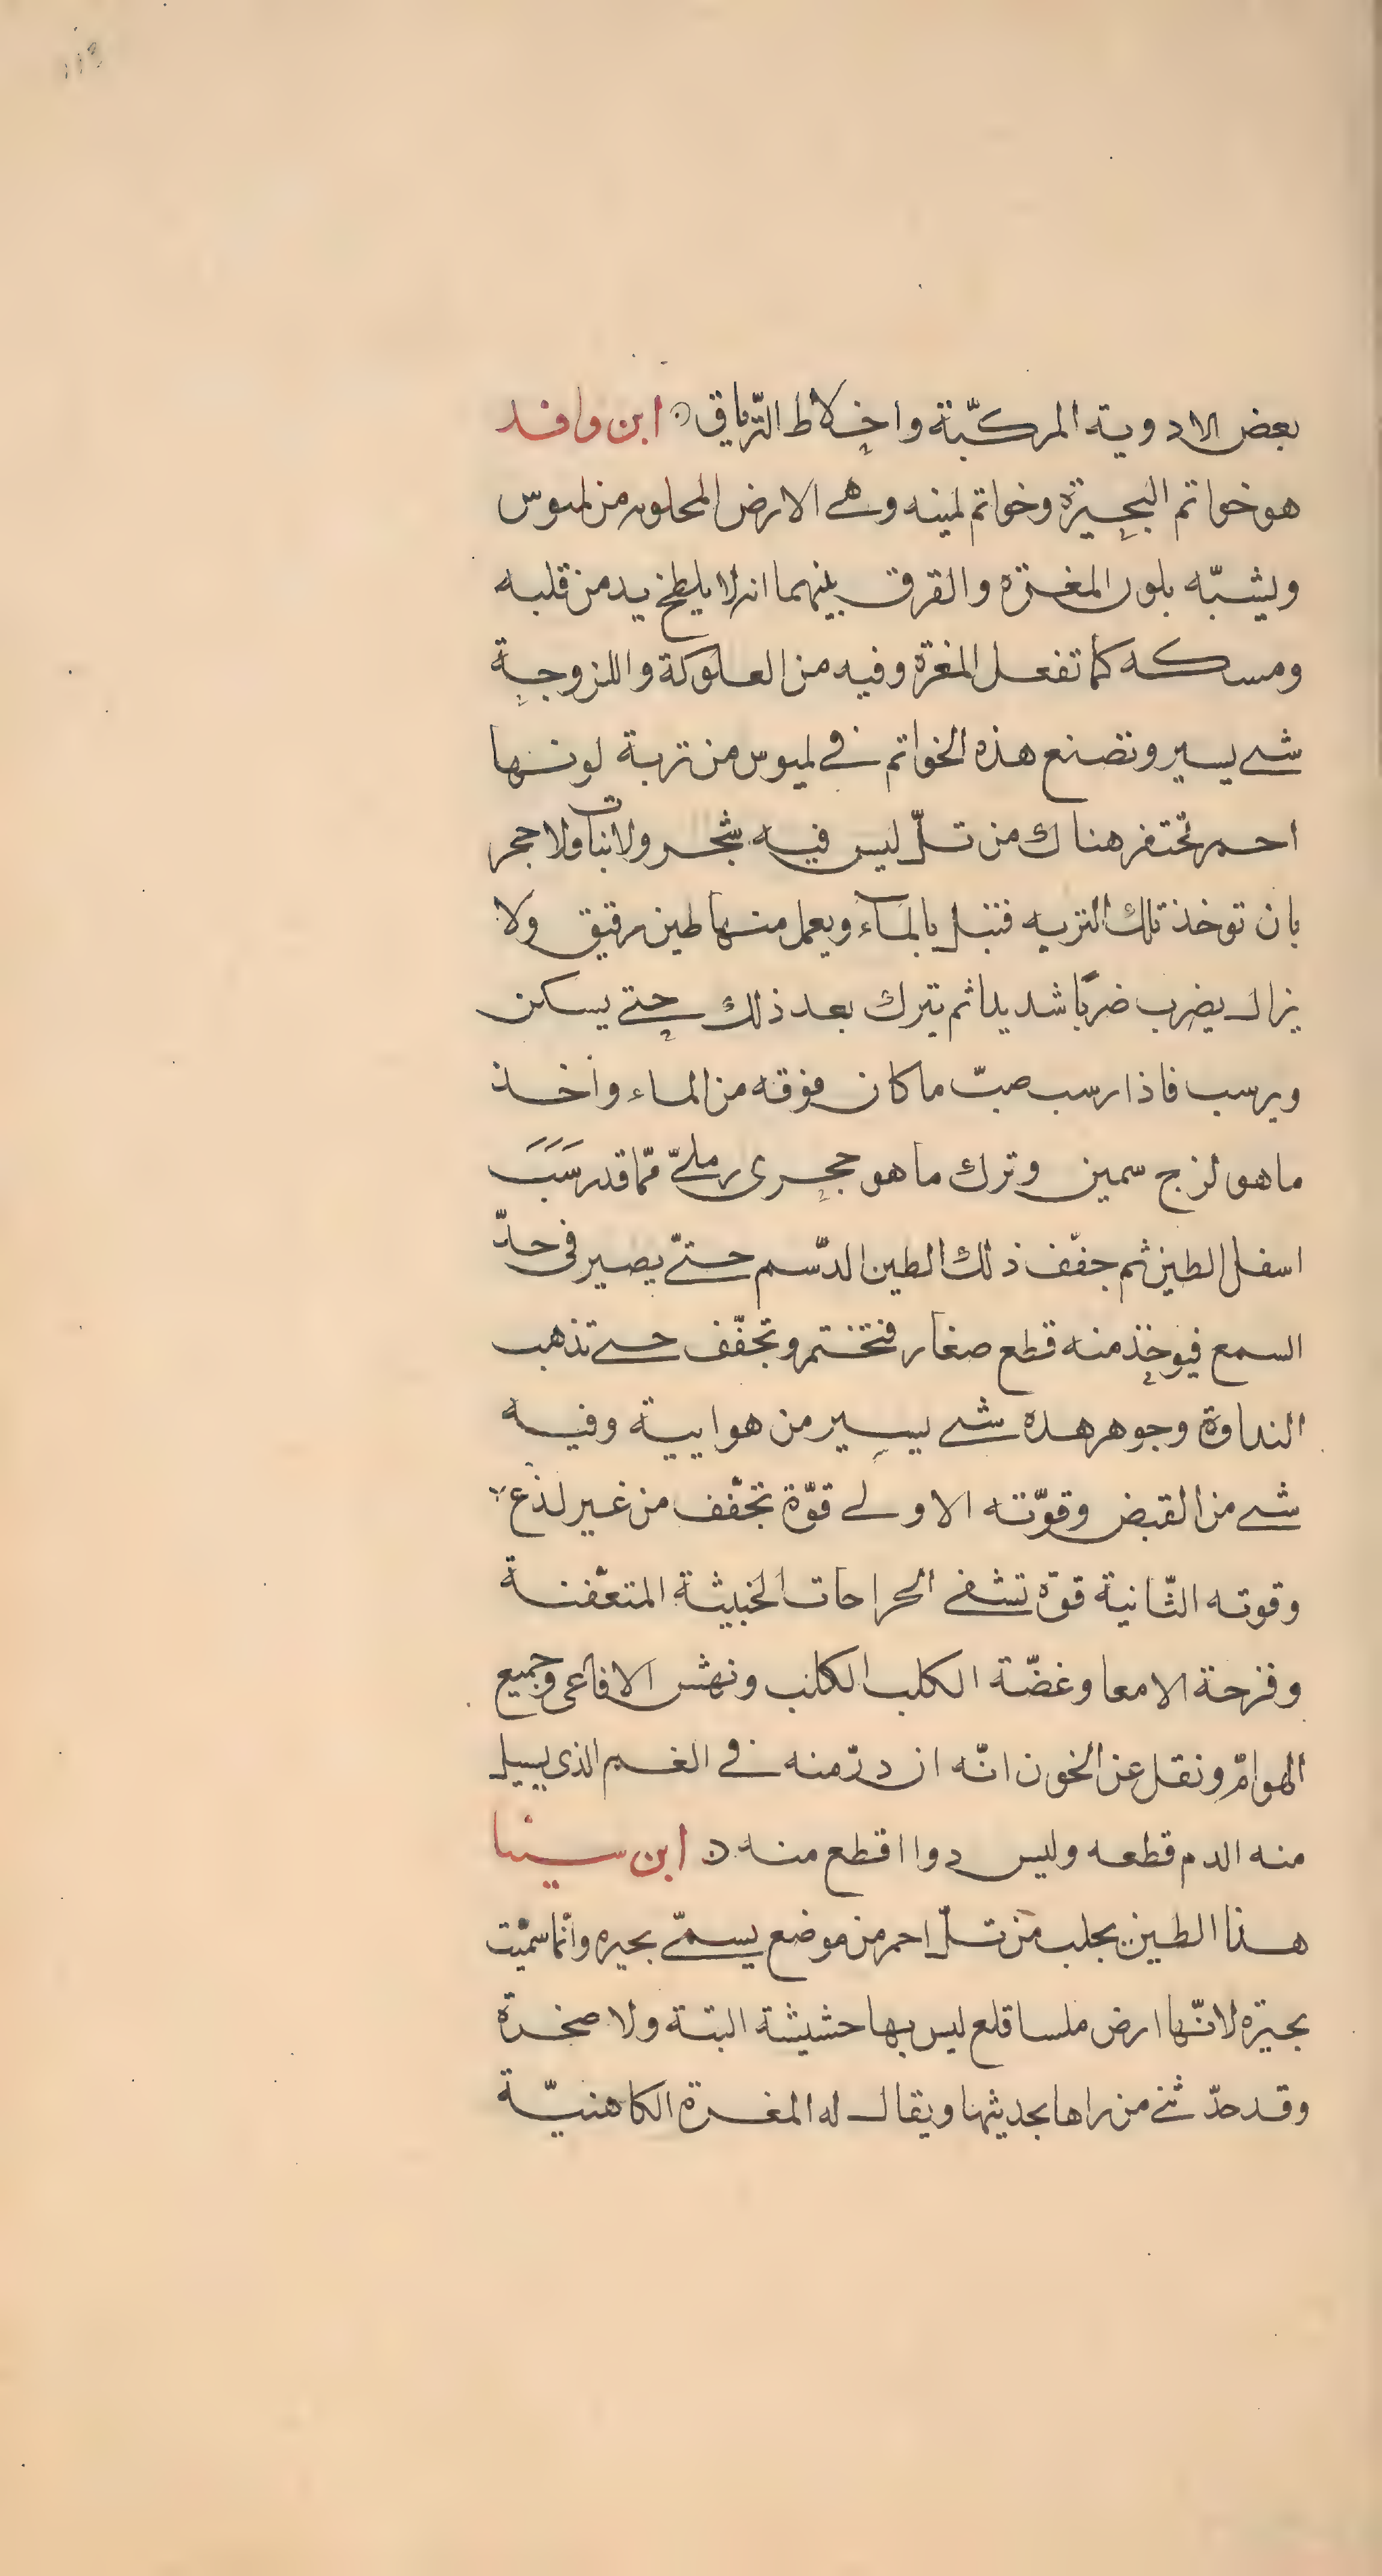 بعض الادوية المركّبة واخلاط التّرياق ابن وافد
هو خواتم البحيرة وخواتم لمينه وهى الارض المجلوبه من لمنوس
ويشبّه بلون المغرة والفرق بينهما انه لا يلطخ يد من قلبه
ومسكه كما تفعل المغرة وفيه من العلوكة واللزوجة
شى يسير وتصنع هذه الخواتم فى لميوس من تربة لونها
احمر تحتفر هناك من تلّ ليس فيه شجر ولا نبات ولا حجر
بان توخذ تلك التربه فتبل بالمآء ويعمل منها طين رقيق ولا
يزال يضرب ضربًا شديدا ثم يترك بعد ذلك حتى يسكن
ويرسب فاذا رسب صبّ ما كان فوقه من الماء واخذ
ما هو لزج سمين وترك ما هو حجرى رملىّ ممّا قد رسَبَ
اسفل الطين ثم جفّف ذلك الطين الدّسم حتىّ يصير فى حدّ
السمع فيوخذ منه قطع صغار فتختم وتجفّف حتى تذهب
النداوة وجوهر هذه شى يسير من هوايية وفيه
شى من القبض وقوّته الاولى قوّة تجفّف من غير لذع
وقوته الثّانية قوّة تشفى الجراحات الخبيثة المتعفّنة
وقرحة الامعا وعضّة الكلب الكلب ونهش الافاعى وجميع
الهوامّ ونقل عن الخون انّه ان درّ منه فى الفم الذى يسيل
منه الدم قطعه وليس دوا اقطع منه ابن سينا
هذا الطين يجلب من تلّ احمر من موضع يسمّى بحيره وانّما سمّيت
بحيرة لانّها ارض ملسا قلع ليس بها حشيشة البتة ولا صخرة
وقد حدّثنى من راها بحديثها ويقال له المغرة الكاهنيّة